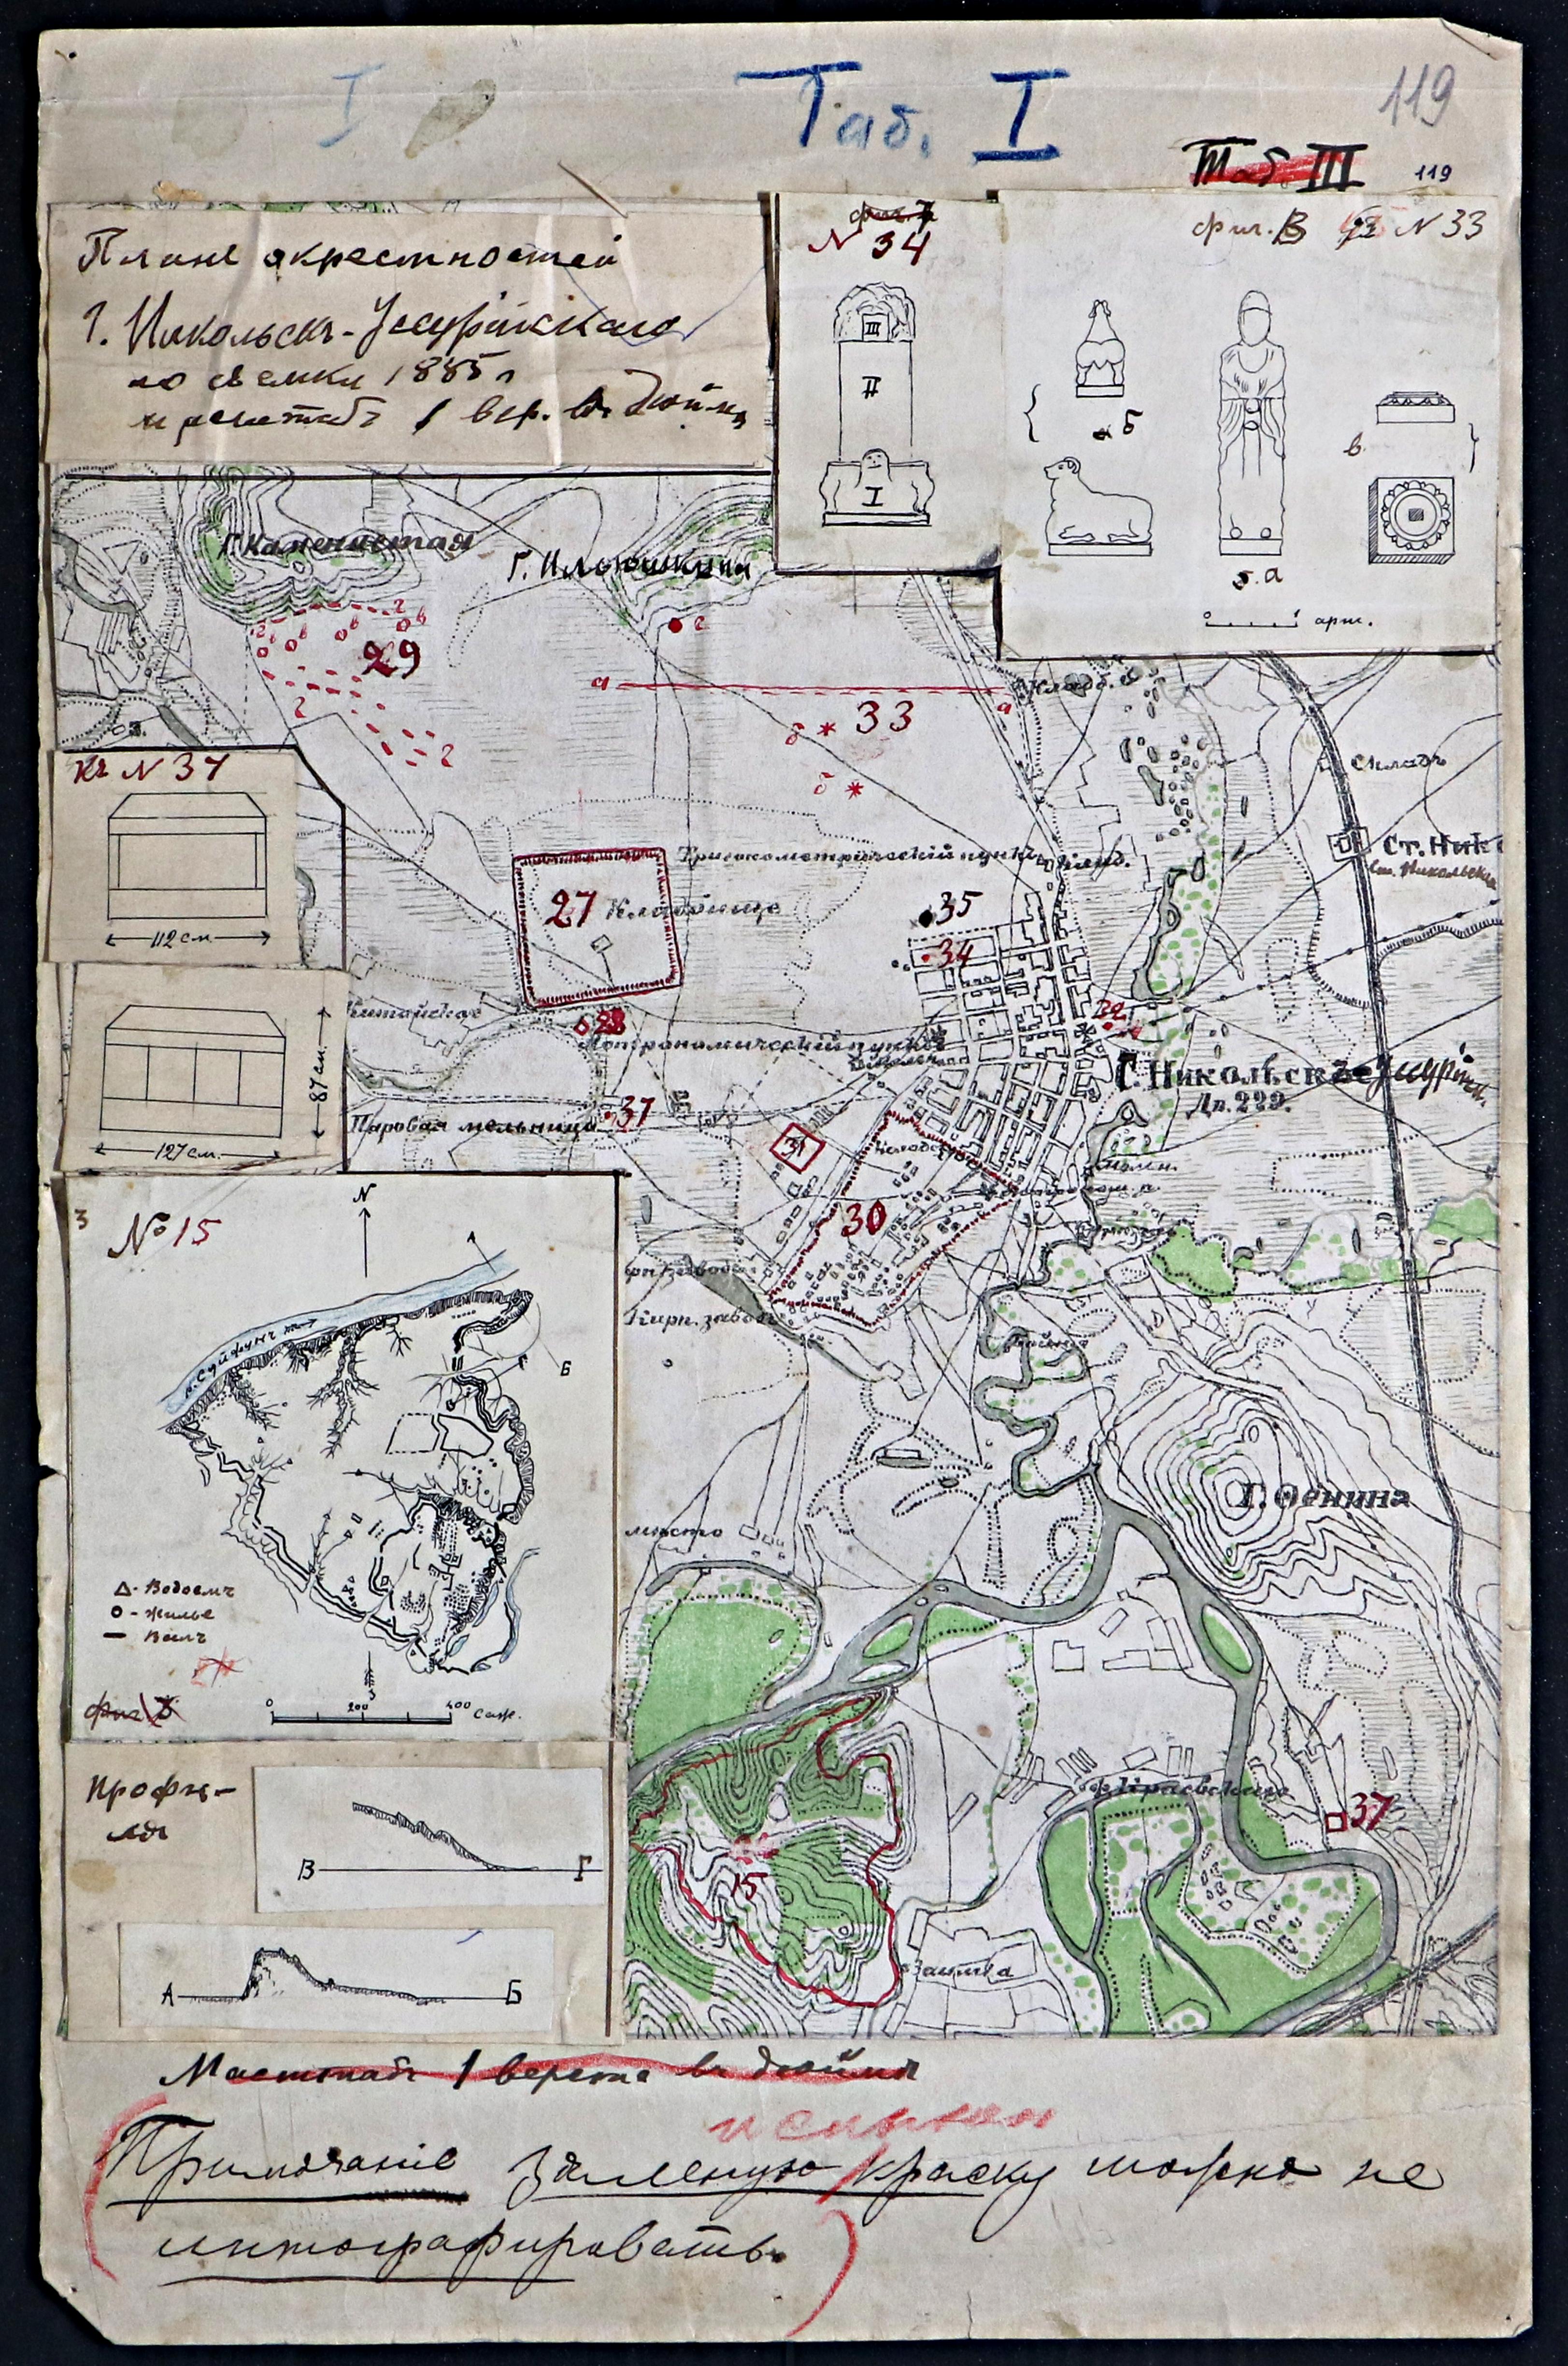 I
Таб. I
119
Таб. III
119
Планъ окрестностей
г. Никольскъ-Уссурійскаго
по съемки 1885 г
масштабъ 1 вер. въ дюймѣ
фиг. 7
N 34
III
II
I
фиг. В
N 33
б
в
б. а
0 1 арш.
Г. Каменистая
Г. Ильюшкина
г
г
в
в
в
в
29
г
г
г
а
а
33
б
б
Кладб.
Складъ
Ст. Ник
ст. Никольская
Къ N 37
112 см
87 см.
127 см.
Тригонометрическій пунктъ
Кладб.
27
Кладбище
35
34
32
Китайское
28
Астрономическій пунктъ
Г. Никольскъ-Уссурійск.
Дв. 229.
Паровая мельница
37
31
30
Кирп. заводъ
мѣсто
Г. Фенина
37
15
Заимка
3
№ 15
N
А
р. Суйфунъ
Б
Г
Δ - Водоемъ
о - жилье
— Валъ
фиг
S
0 200 400 саж.
Профи-
ль
В Г
А Б
Масштабъ 1 верста въ дюймѣ
и синюю
Примѣчаніе Зеленую краску можно не
литографировать.